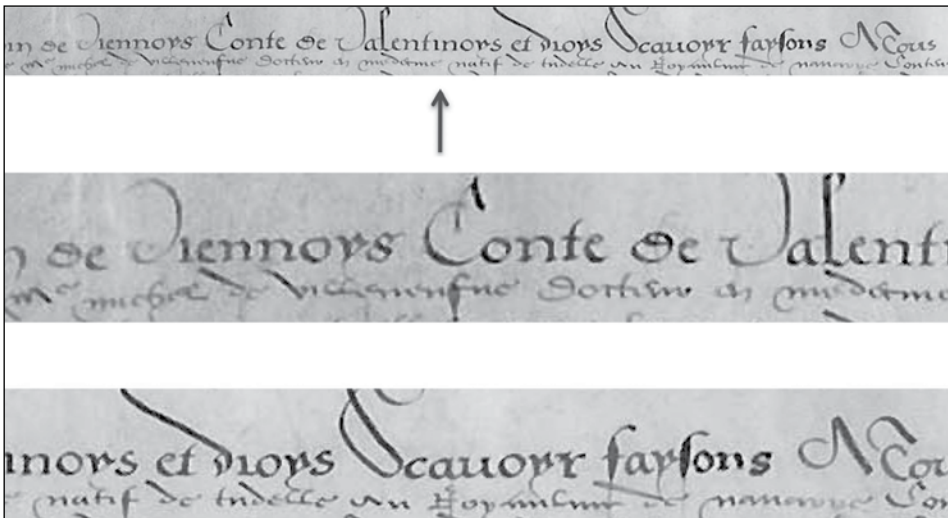 de Viennoys Conte de Valentinoys et dioys Scavoyr faysons A Tous
me michel de villenenfue docteur en medecine natif de tudelle au Royaulme de navarre
de Viennoys Conte de Valent
me michel de villenenfue docteur en medecine
inoys et dioys Scavoyr faysons A Tou
natif de tudelle au Royaulme de navarre